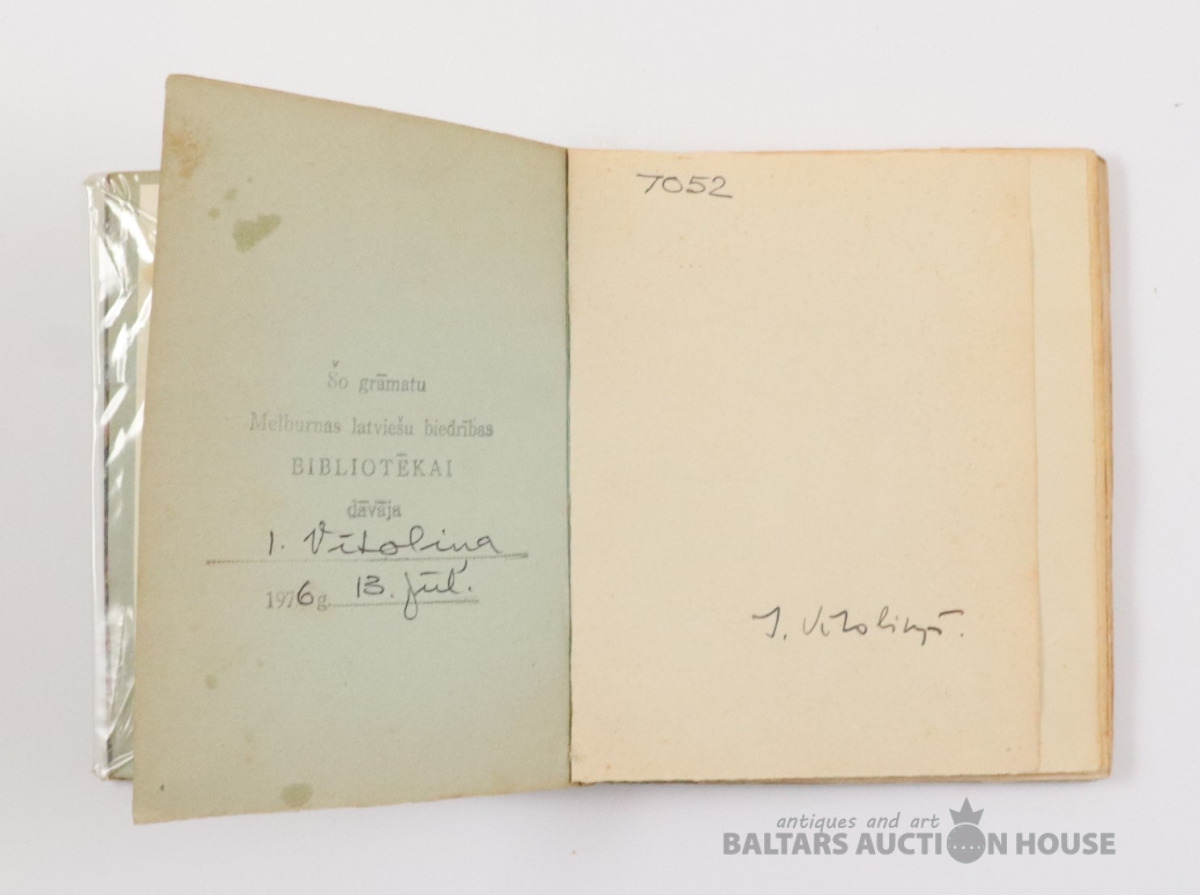 Šo grāmatu
Melburnas latviešu biedrības
BIBLIOTĒKAI
dāvāja
I. Vītoliņa
1976 g. 13. jūl.
7052
J. Vītoliņš.
antiques and art
BALTARS AUCTION HOUSE